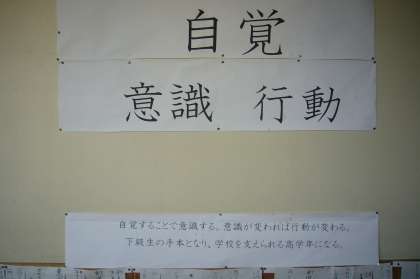 自覚
意識　行動
自覚することで意識する。意識が変われば行動が変わる。
下級生の手本となり、学校を支えられる高学年になる。